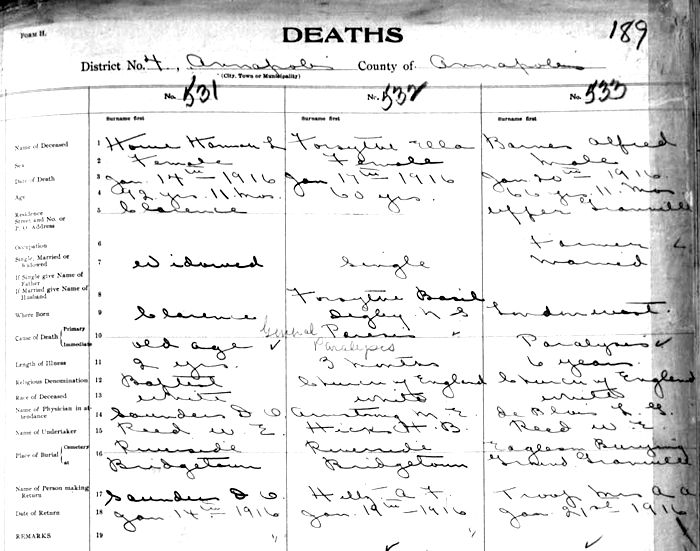 FORM H.
DEATHS
189
District No. 4, Annapolis County of Annapolis
(City, Town or Municipality)
No. 531 No. 532 No. 533
Surname first Surname first Surname first
Name of Deceased 1 Hannah L Forsythe Ella Barnes Alfred
Sex 2 Female Female Male
Date of Death 3 Jan. 14th 1916 Jan 17th 1916 Jan. 20th 1916
Age 4 92 yrs. 11 Mos. 60 yrs. 66 yrs. 11 Mos
Residence
Street and No. or
P. O. Address
5 Clarence Upper Granville
Occupation 6 Farmer
Single, Married or
Widowed
7 Widowed Single Married
If Single give Name of
Father
If Married give Name of
Husband
8 Forsythe Basil
Where Born 9 Clarence Digby N S London west.
Cause of Death Primary
Immediate
10 General Paresis
Paralysis
old age Paralysis
Length of Illness 11 2 yrs. 3 Months 6 years
Religious Denomination 12 Baptist Church of England Church of England
Race of Deceased 13 White White White
Name of Physician in attendance
14 Saunders Armstrong M. E. de Blois
Name of Undertaker 15 Reed W E. Hicks H. B. Reed W E.
Place of Burial Cemetery
at
16 Riverside Riverside Burying
Bridgetown Bridgetown Ground Granville
Name of Person making
Return
17 Saunders Troop Mrs A A
Date of Return 18 Jan 14th 1916 Jan. 19th 1916 Jan. 21st 1916
REMARKS 19 "